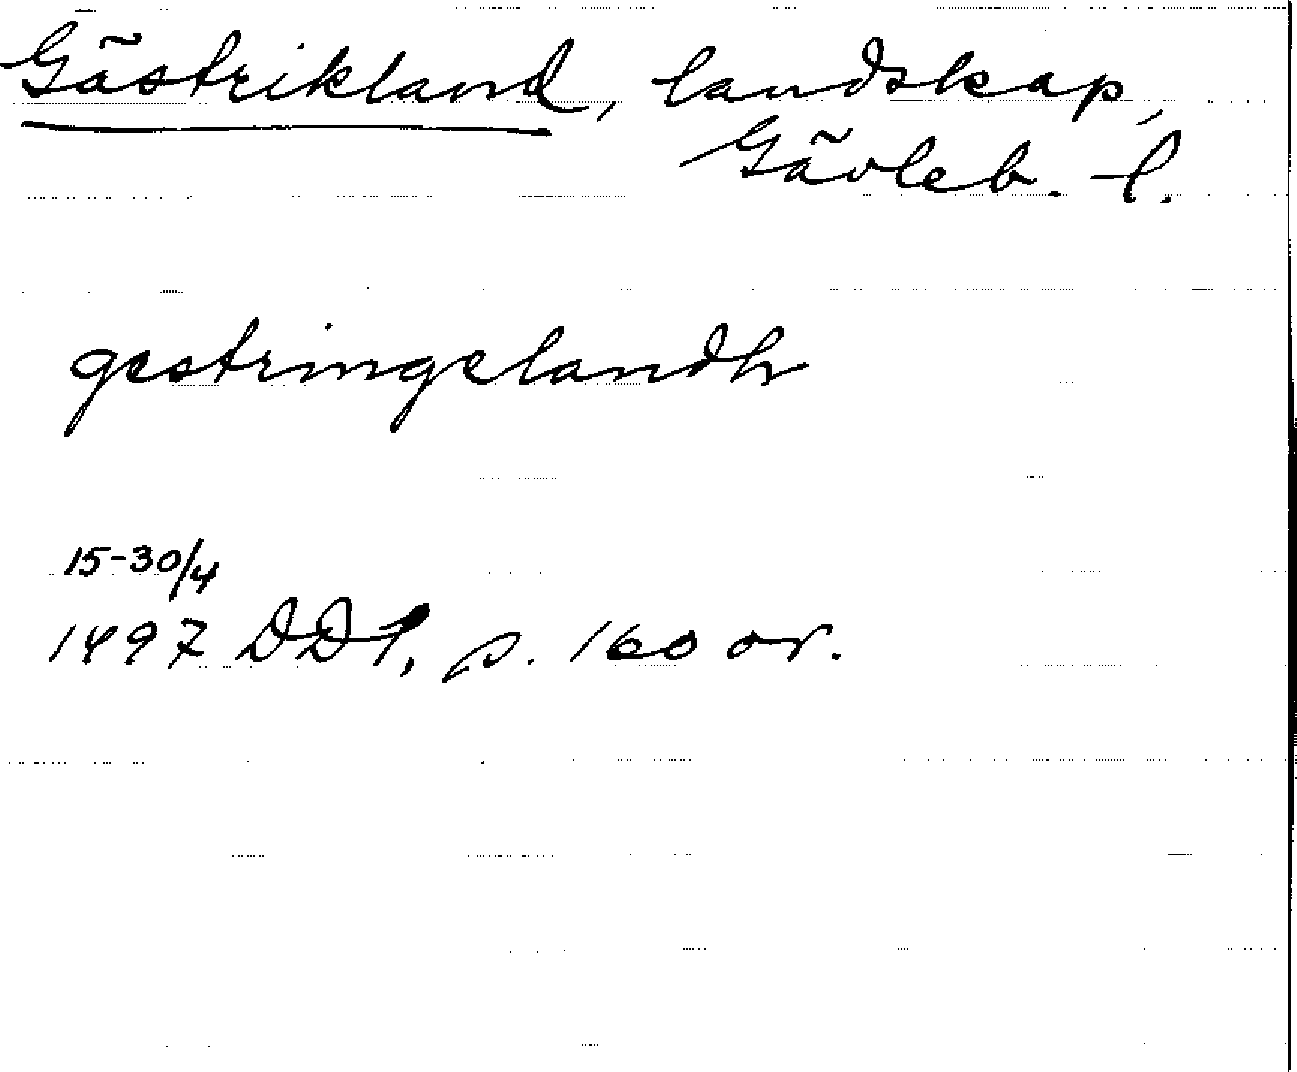 Gästrikland, landskap,
Gävleb. l.
gestringelandh
15-30/4
1497 DD1, p. 160 or.